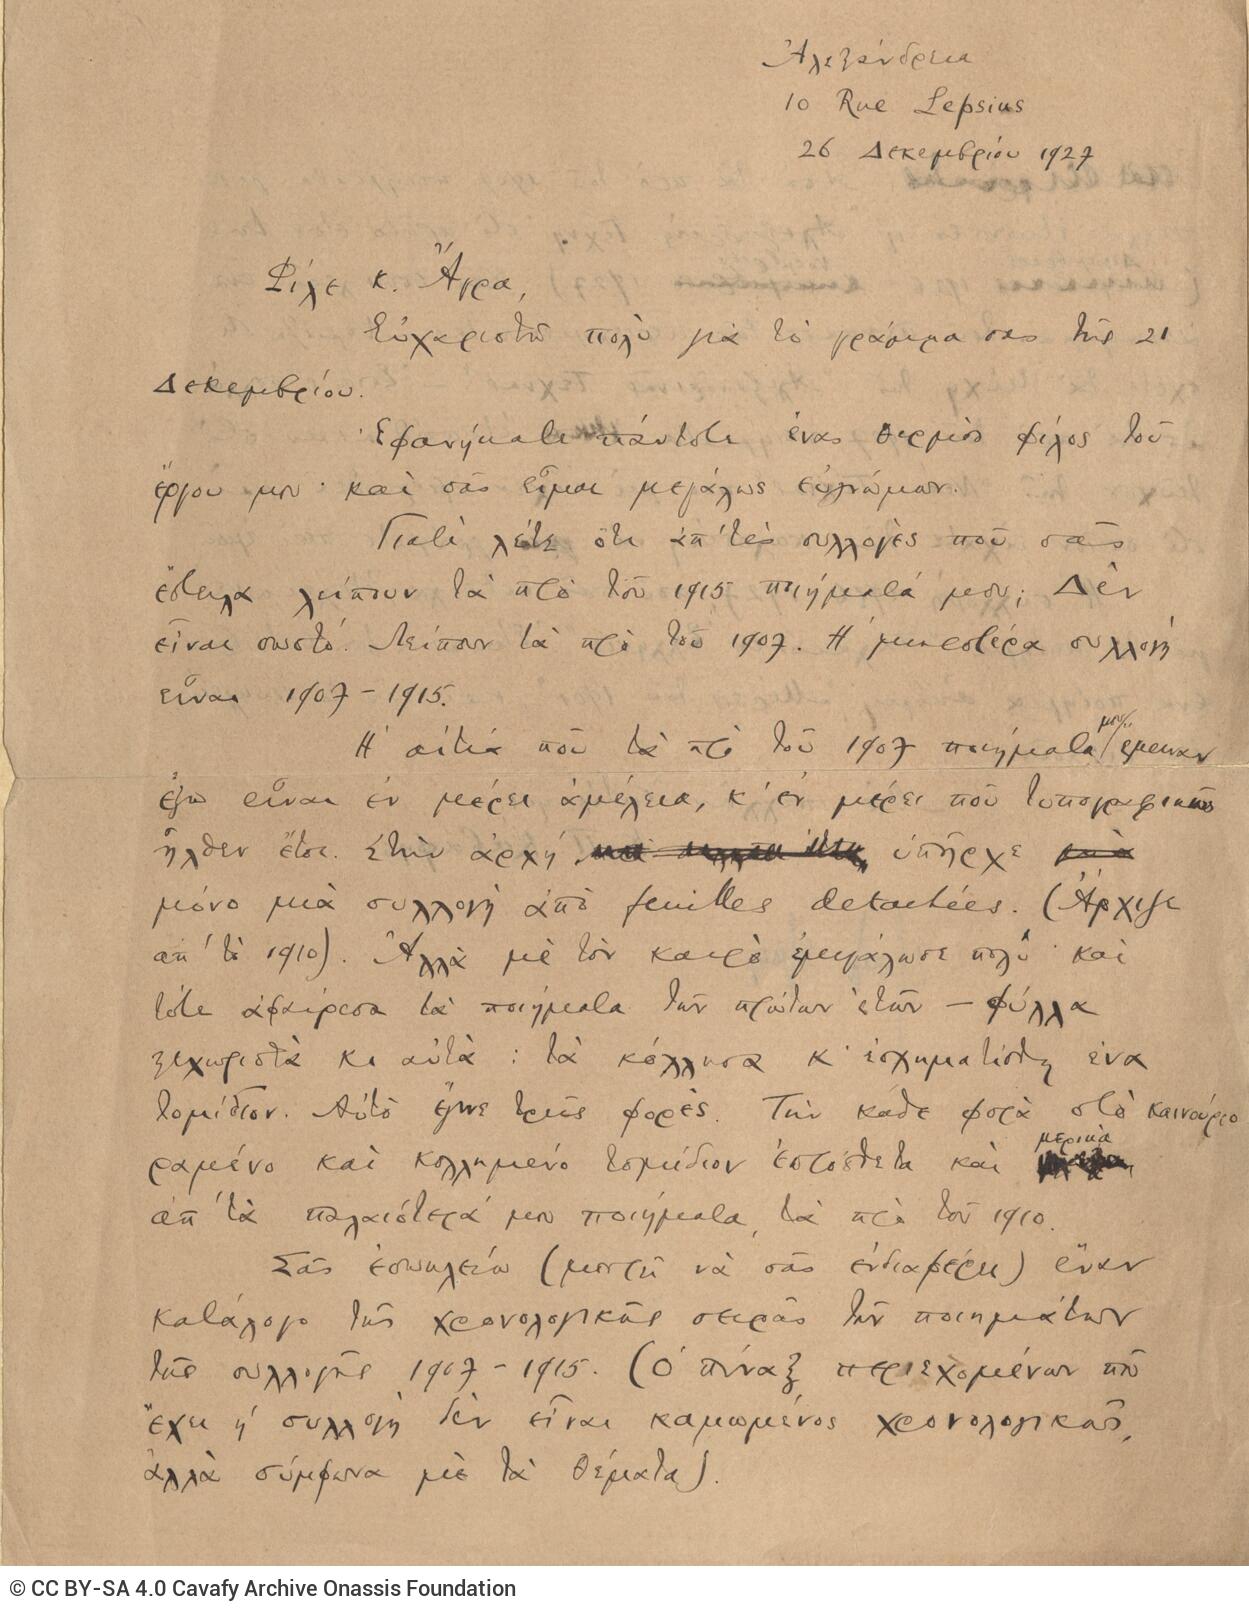 Ἀλεξάνδρεια
10 Rue Lepsius
26 Δεκεμβρίου 1927
Φίλε κ. Ἄγρα,
Εὐχαριστῶ πολὺ γιὰ τὸ γράμμα σας τῆς 21
Δεκεμβρίου.
Ἐφανήκατε πάντοτε ἕνας θερμὸς φίλος τοῦ
ἔργου μου· καὶ σᾶς εἶμαι μεγάλως εὐγνώμων.
Γιατὶ λέτε ὅτι ἀπ' τὲς συλλογὲς ποῦ σᾶς
ἔστειλα λείπουν τὰ πρὸ τοῦ 1915 ποιήματά μου; Δὲν
εἶναι σωστό. Λείπουν τὰ πρὸ τοῦ 1907. Ἡ μικροτέρα συλλογὴ
εἶναι 1907-1915.
Ἡ αἰτία ποῦ τὰ πρὸ τοῦ 1907 ποιήματα μου ἔμειναν
ἔξω εἶναι ἐν μέρει ἀμέλεια, κ' ἐν μέρει ποῦ τυπογραφικῶς
ἦλθεν ἔτσι. Στὴν ἀρχὴ ὑπῆρχε
μόνο μιὰ συλλογὴ ἀπὸ feuilles detachées. (Ἄρχιζε
ἀπ' τὸ 1910). Ἀλλὰ μὲ τὸν καιρὸ ἐμεγάλωσε πολὺ καὶ
τότε ἀφαίρεσα τὰ ποιήματα τῶν πρώτων ἐτῶν — φύλλα
ξεχωριστὰ κι αὐτὰ: τὰ κόλλησα κ' ἐσχηματίσθη ἕνα
τομίδιον. Αὐτὸ ἔγινε τρεῖς φορές. Τὴν κάθε φορὰ στὸ καινούριο
ραμένο καὶ κολλημένο τομίδιον ἐπρόσθετα καὶ μερικὰ
ἀπ' τὰ παλαιότερά μου ποιήματα, τὰ πρὸ τοῦ 1910.
Σᾶς ἐσωκλείω (μπορεῖ νὰ σᾶς ἐνδιαφέρει) ἕναν
κατάλογο τῆς χρονολογικῆς σειρᾶς τῶν ποιημάτων
τῆς συλλογῆς 1907-1915. (Ὁ πίναξ περιεχομένων ποῦ
ἔχει ἡ συλλογὴ δὲν εἶναι καμωμένος χρονολογικῶς,
ἀλλὰ σύμφωνα μὲ τὰ θέματα).
© CC BY-SA 4.0 Cavafy Archive Onassis Foundation